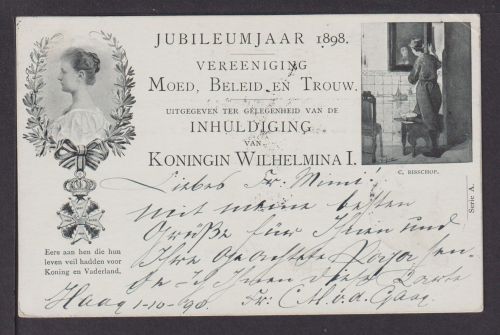 JUBILEUMJAAR 1898.
VEREENIGING
MOED, BELEID EN TROUW.
UITGEGEVEN TER GELEGENHEID VAN DE
INHULDIGING
VAN
KONINGIN WILHELMINA I.
C. BISSCHOP.
Serie A.
Eere aan hen die hun
leven veil hadden voor
Koning en Vaderland.
Liebes Fr. Mimi!
mit meine besten
Grüße für Ihnen und
Ihre Geachtete Papa sen-
de ich Ihnen diese Karte
Haag 1-10-98. Fr. C.M.v.d. Gaag.